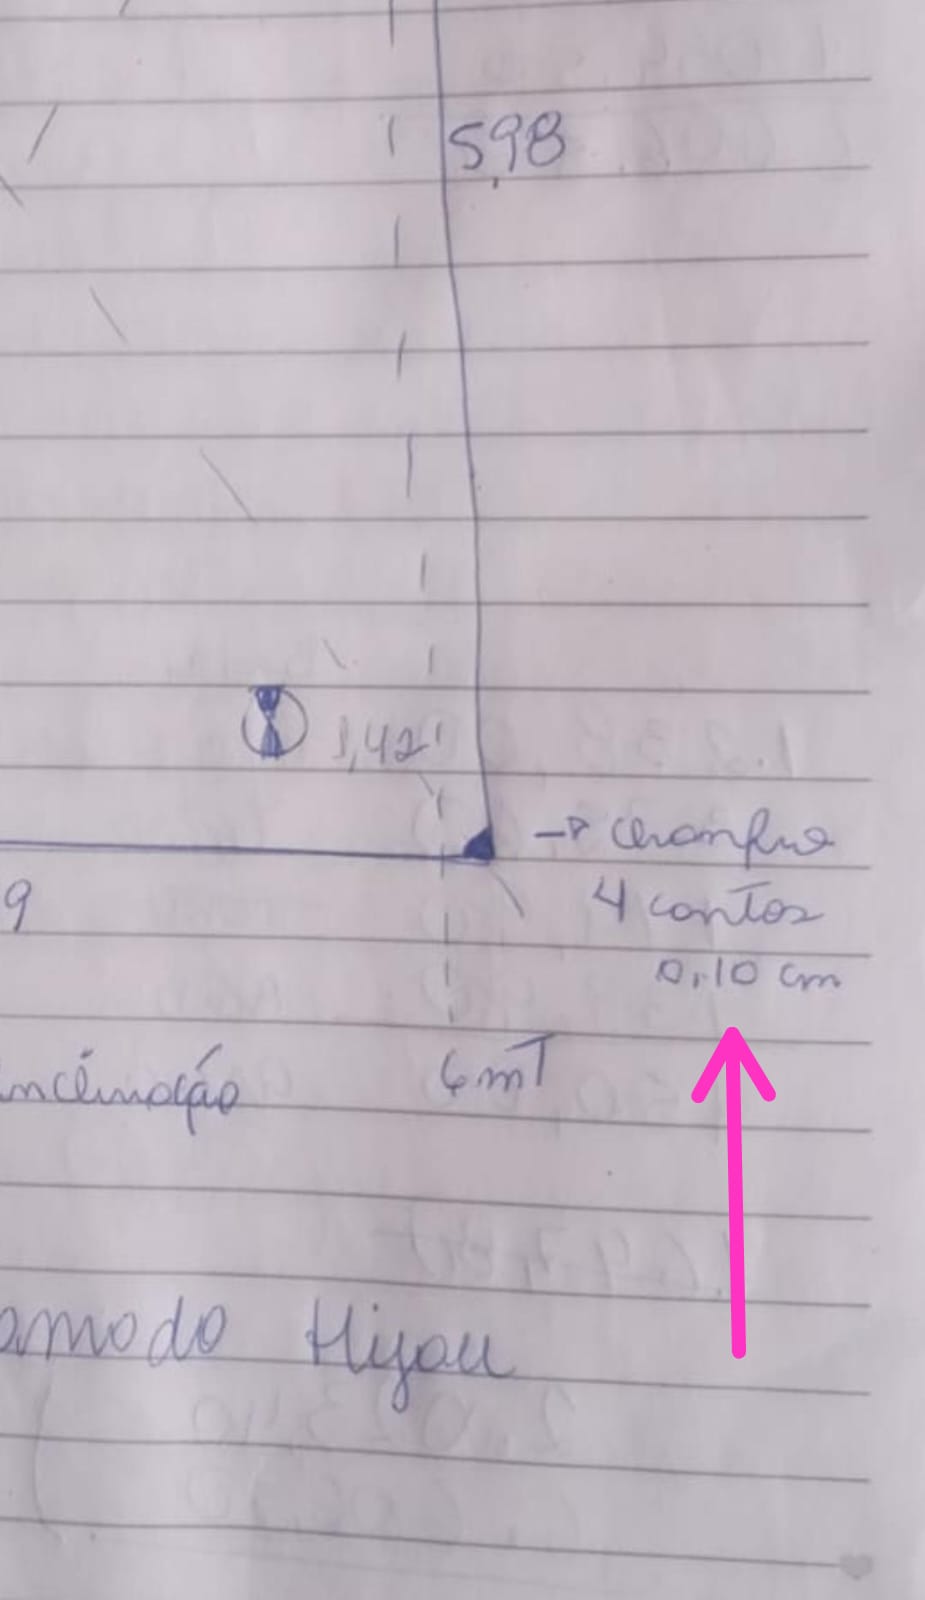 5,98
1,42
→ chanfre
4 cantos
0,10 cm
9
inclinação 6 mT
amado Hijau